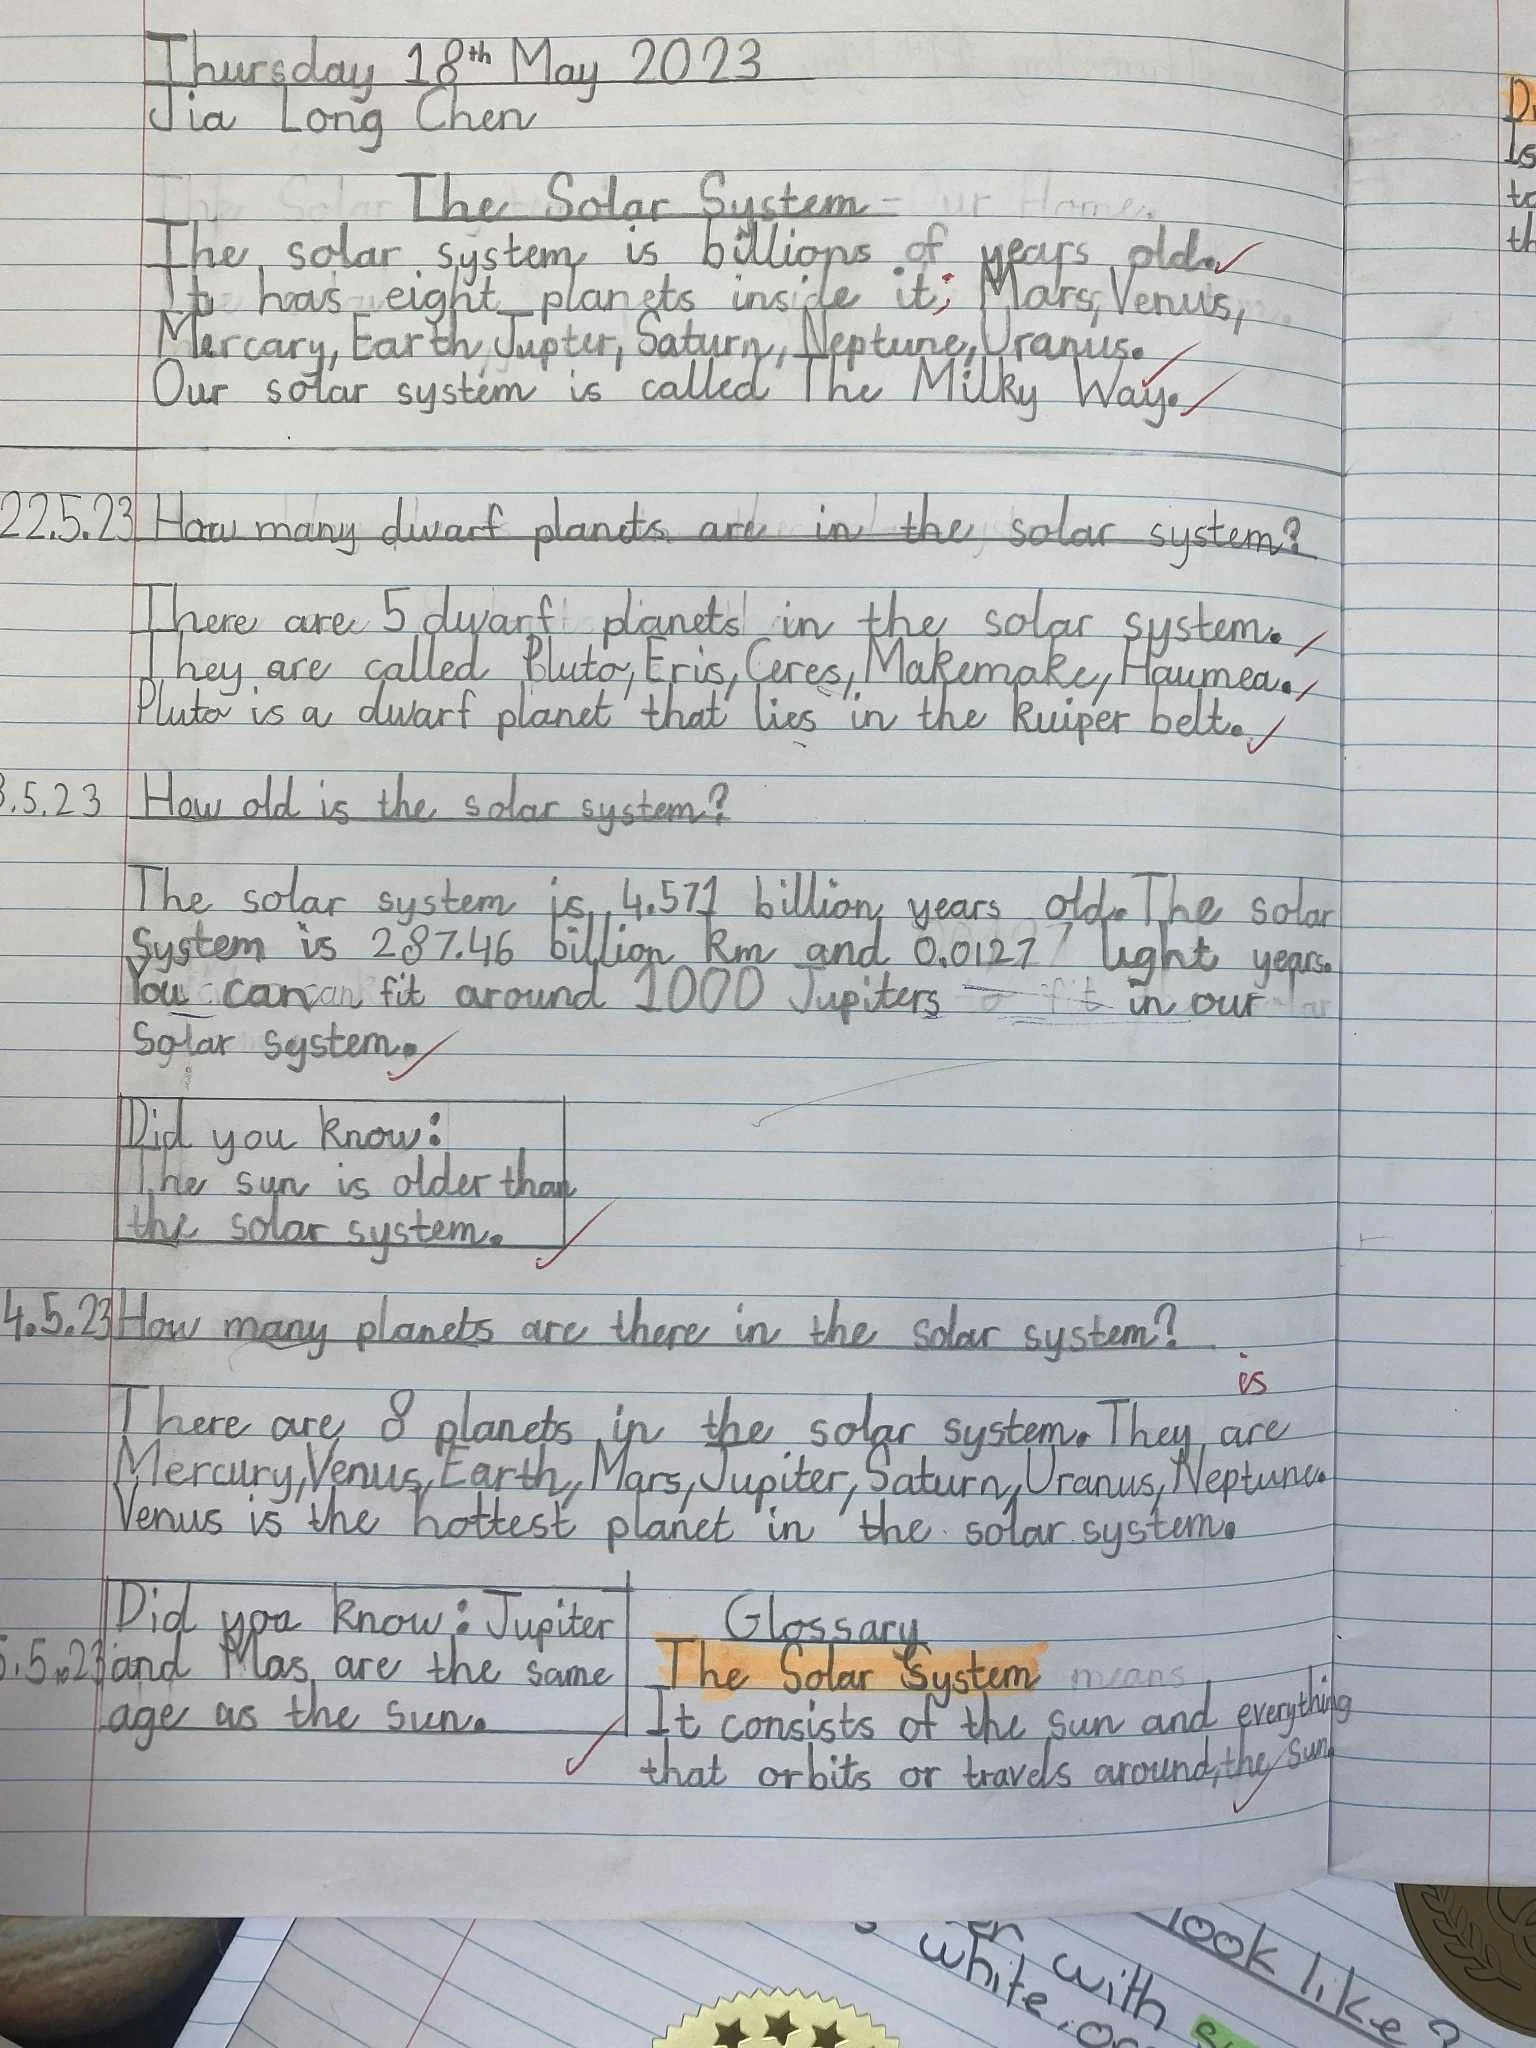 Thursday 18th May 2023
Jia Long Chen
The Solar System
The solar system is billions of years old.
It has eight planets inside it; Mars, Venus,
Mercary, Earth, Jupter, Saturn, Neptune, Uranus.
Our solar system is called The Milky Way.
22.5.23 How many dwarf planets are in the solar system?
There are 5 dwarf planets in the solar system.
They are called Pluto, Eris, Ceres, Makemake, Haumea.
Pluto is a dwarf planet that lies in the kuiper belt.
.5.23 How old is the solar system?
The solar system is 4.571 billion years old. The solar
system is 287.46 billion km and 0.0127 light years.
You can fit around 1000 Jupiters in our
Solar system.
Did you know:
The sun is older than
the solar system.
4.5.23 How many planets are there in the solar system?
is
There are 8 planets in the solar system. They are
Mercury, Venus, Earth, Mars, Jupiter, Saturn, Uranus, Neptune.
Venus is the hottest planet in the solar system.
Did you know: Jupiter
.5.23 and Mas are the same
age as the sun.
Glossary
The Solar System means
It consists of the sun and everything
that orbits or travels around, the sun
look like?
with
white.